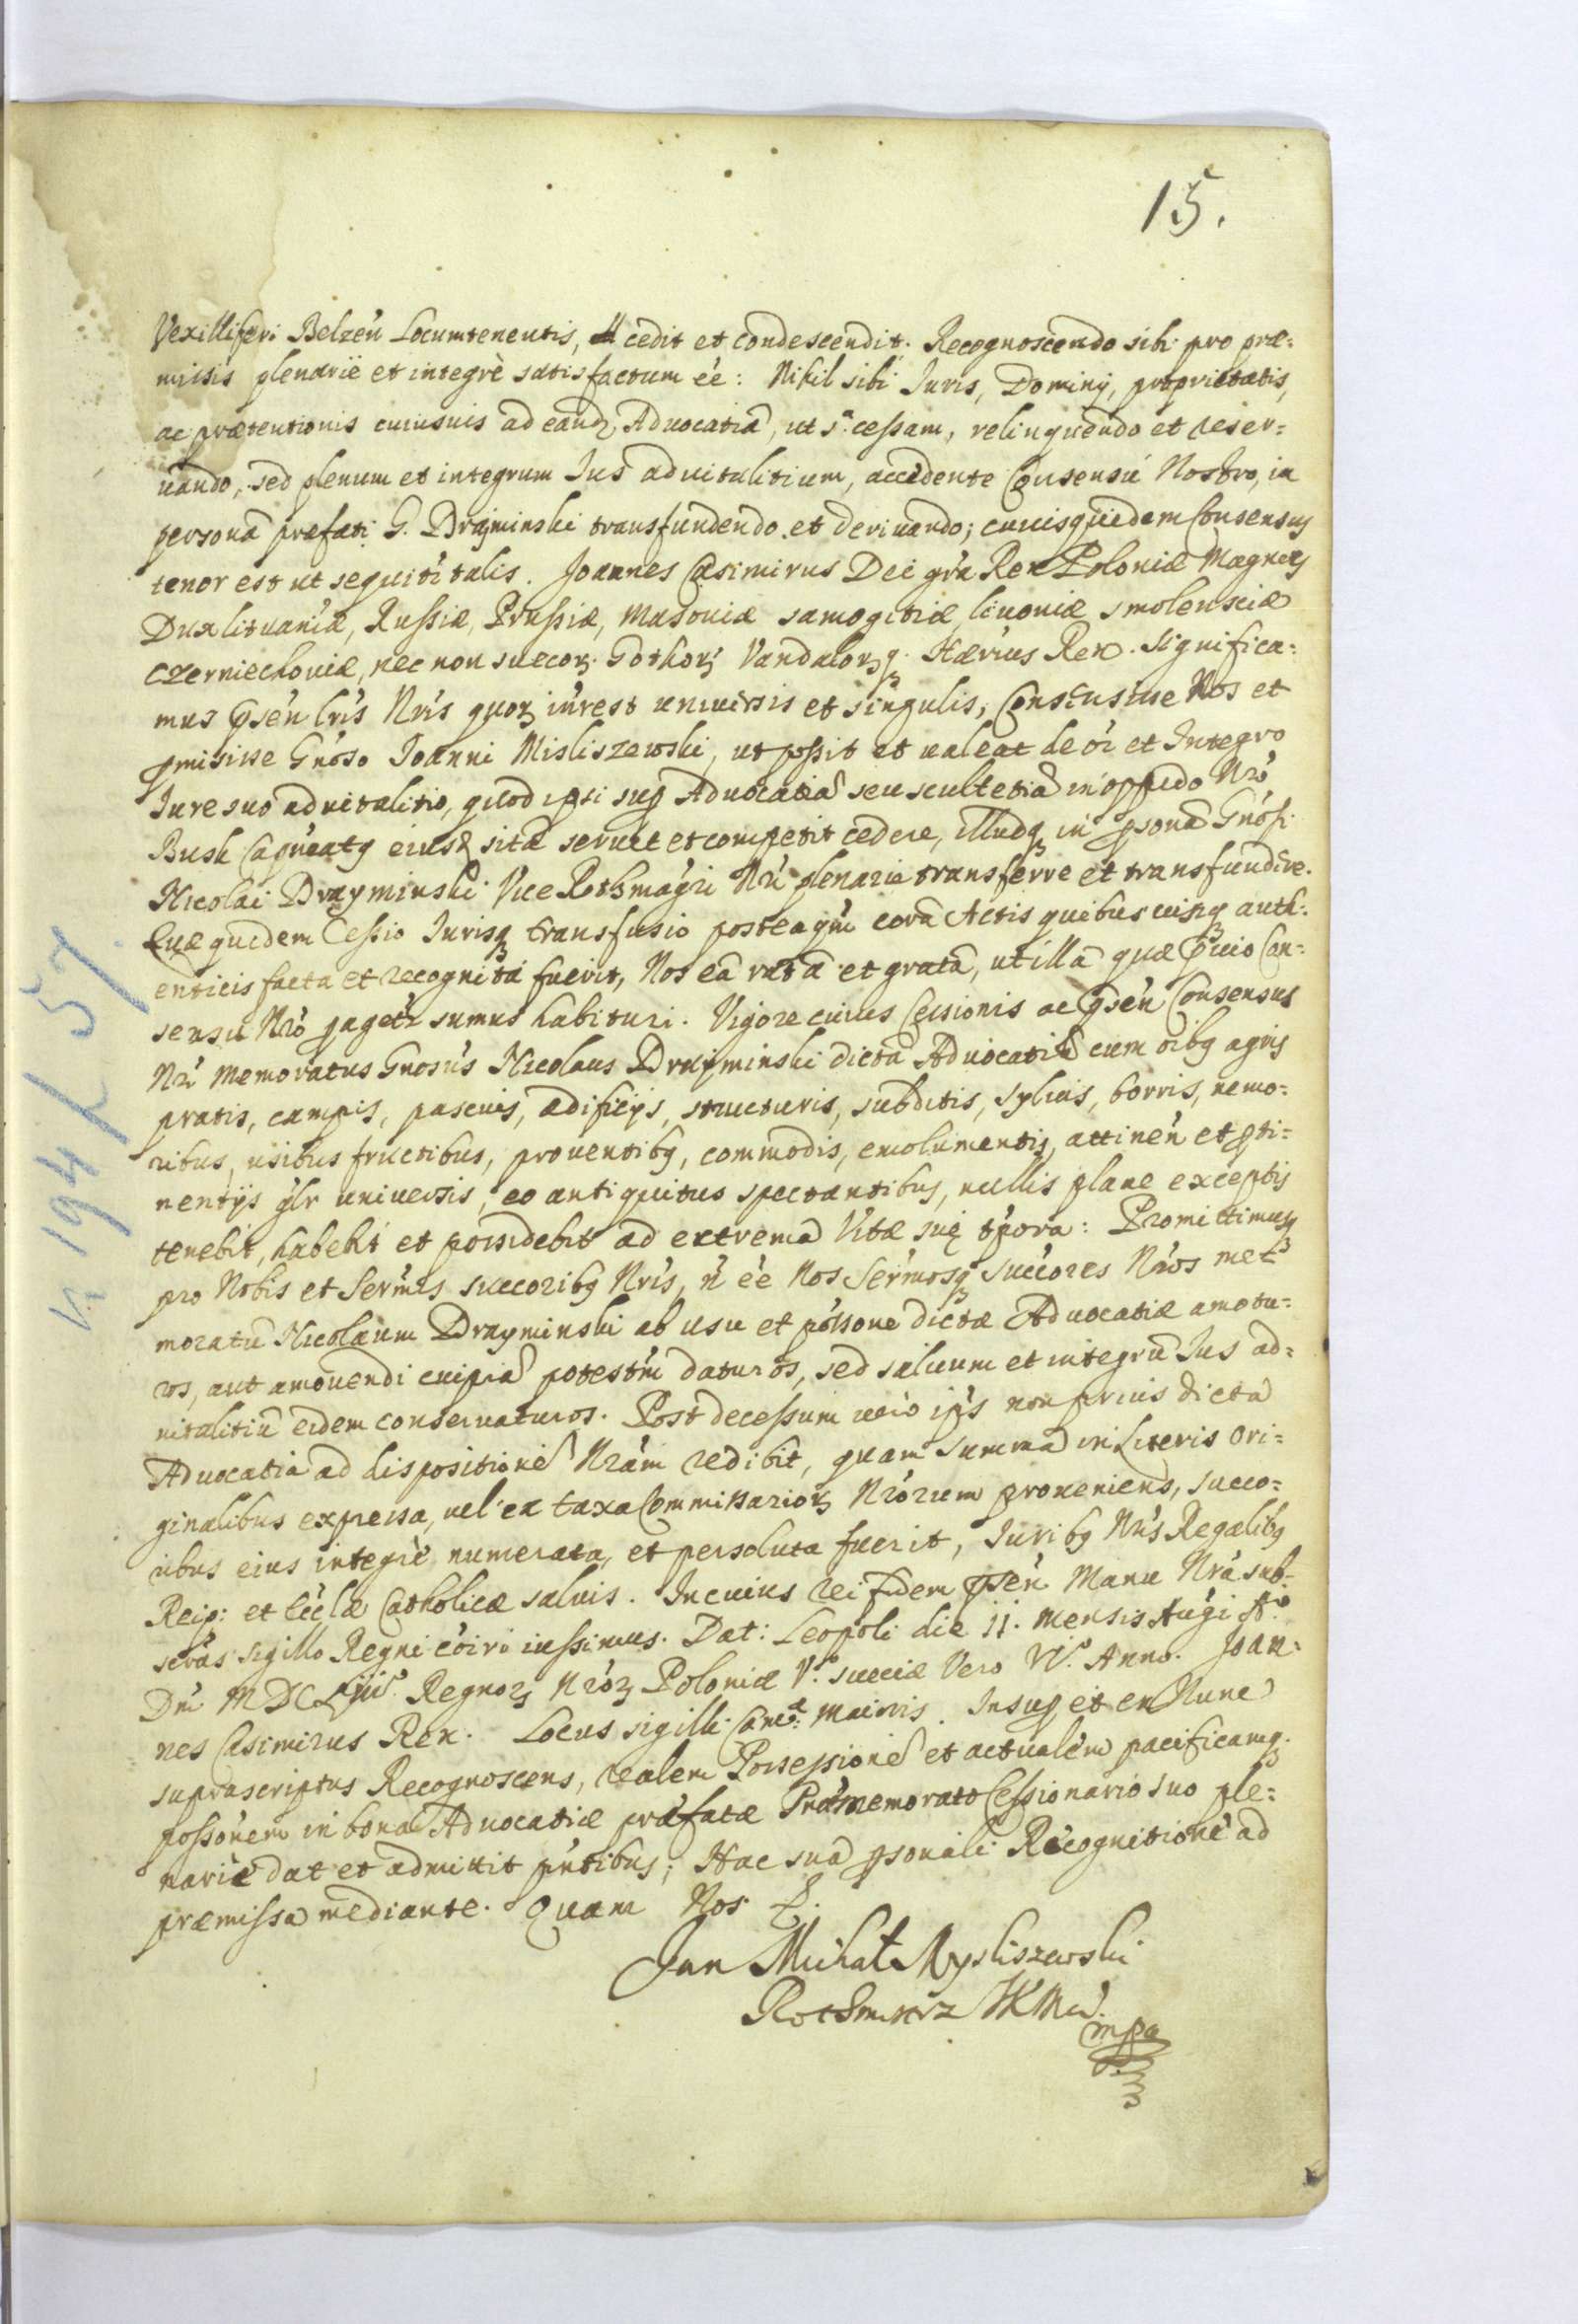 15.
Vexilliferi Belzeń Locumtenentis, cedit et condescendit. Recognoscendo sibi pro præ:
missis plenariè et integrè satisfactum eé: Nihil sibi Iuris, Dominij, proprietatis,
ac prætentionis cuiusuis ad eandz Aduocatiã, ut sª. cessam, relinquendo et reser:
uando, sed plenum et integrum Ius aduitalitium, accedente Consensu Nostro, in
personã præfati G. Drayminski transfundendo et deriuando; cuiusquidem Consensus
tenor est ut sequitr talis. Joannes Casimirus Dei gra Rex Poloniæ Magnus
Dux Lituaniæ, Russiæ, Prussiæ, Masouiæ Samogitiæ, Liuoniæ Smolensciæ
Czerniechouiæ, nec non Suecorz Gothorz Vandalorzq. Hærius Rex. Significa:
mus pseń lris Nris quorz inrest uniuersis et singulis, Consensisse Nos et
pmisisse Gnoso Ioanni Misliszewski, ut possit et ualeat de oi et Integro
Iure suo aduitalitio, quod ipsi sup Aduocatiã seu scultetiã in oppido Nro
Busk eiusq sitã seruit et competit cedere, illudq in psonã Gnosi
Nicolai Drayminski Vice Rothmagri Nri plenarie transferre et transfundere.
Quæ quidem Cessio Iurisq transfusio posteaqm corã Actis quibuscuisq auth:
enticis facta et recognita fuerit, Nos eã ratã et gratã, ut illã quæ Con:
sensu Nro pagetr sumus habituri. Vigore cuius Cessionis ac pseń Consensus
Nri memoratus Gnosus Nicolaus Drayminski dictã Aduocatiã cum oibq agris
pratis, campis, pascuis, ædificijs, structuris, subditis, syluis, borris, nemo:
ribus, usibus fructibus, prouentibq, commodis, emolumentis, attineń et pti:
nentijs glr uniuersis, eo antiquitus spectantibus, nullis plane exceptis
tenebit, habebit et possidebit ad extrema Vitæ suę tpora: Promittimusq
pro Nobis et Sermis succoribq Nris, ń eé Nos Sermosq succores Nros me
moratũ Nicolaum Drayminski ab usu et possone dictæ Aduocatiæ amotu:
ros, aut amouendi cuipiã potestm daturos, sed saluum et integrũ Ius ad:
uitalitiũ eidem conseruaturos. Post decessum uero ipsis non prius dicta
Aduocatia ad dispositionẽ Nram redibit, quam summa in Literis Ori:
ginalibus expressa, uel ex taxa Commissariorz Nrorum proueniens, succo:
ribus eius integrè numerata, et persoluta fuerit, Iuribq Nris Regalibq
Reip: et Ecclæ Catholicæ saluis. In cuius rei fidem pseń Manu Nra sub:
scras sigillo Regni coiri iussimus. Dat: Leopoli die ii. mensis Augi Aº.
Dni MDCLiii. Regnorz Nrorz Poloniæ V. Sueciæ Vero VI. Anno. Joan:
nes Casimirus Rex. Locus sigilli Canc: Maioris. Insup et ex Nunc
suprascriptus Recognoscens, realem Possessionẽ et actualem pacificamq
possonem in bona Aduocatiæ præfatæ Præmemorato Cessionario suo ple:
nariè dat et admittit pntibus; Hac suã psonali Recognitione ad
præmissa mediante. Quam Nos
Jan Michał Mysliszewski
Rothmistrz JKMci
mpa